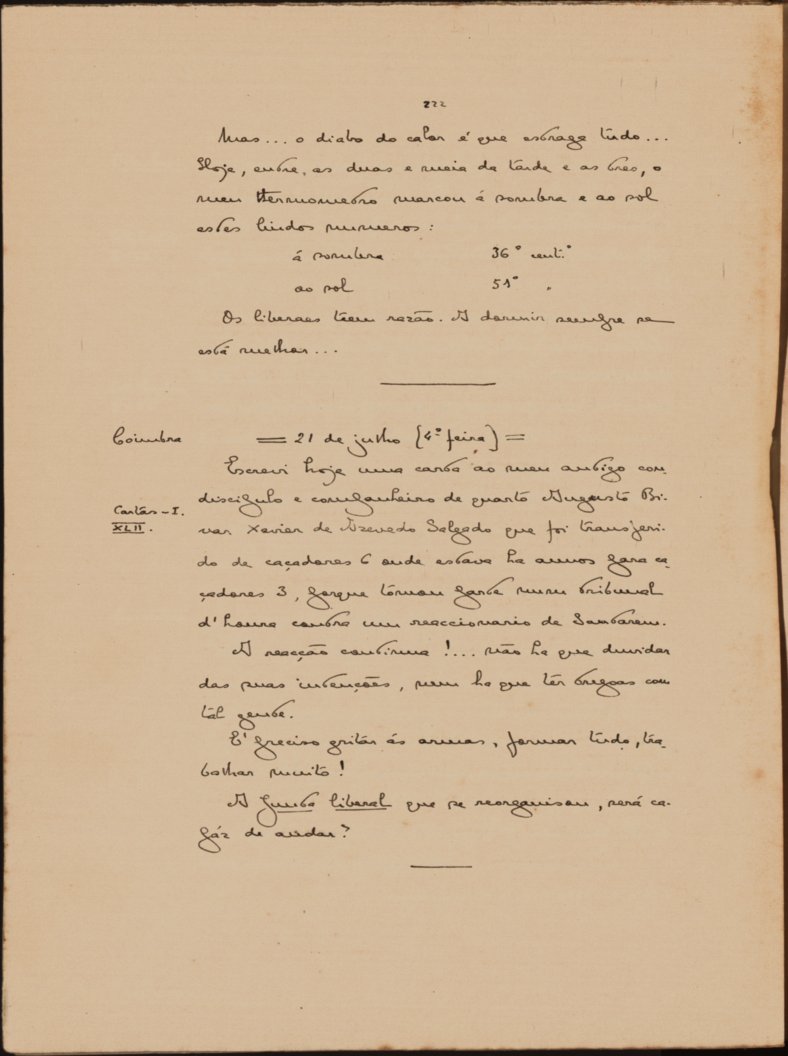 222
Mas... o diabo do calor é que estraga tudo...
Hoje, entre, as duas e meia da tarde e as tres, o
meu thermometro marcou á sombra e ao sol
estes lindos numeros:
á sombra 36° cent.°
ao sol 51° "
Os liberaes teem razão. A dormir sempre se
está melhor...
Coimbra = 21 de julho (4ª feira) =
Escrevi hoje uma carta ao meu antigo con-
discipulo e companheiro de quarto Augusto Bi-
Cartas-I.
XLII.
var Xavier de Azevedo Salgado que foi transferi-
do de caçadores 6 onde estava ha annos para ca-
çadores 3, porque tomou parte num tribunal
d'honra contra um reaccionario de Santarem.
A reacção continua!... não ha que duvidar
das suas intenções, nem ha que têr tregoas com
tal gente.
E' preciso gritar ás armas, formar tudo, tra-
balhar muito!
A Junta liberal que se reorganisou, será ca-
páz de andar?